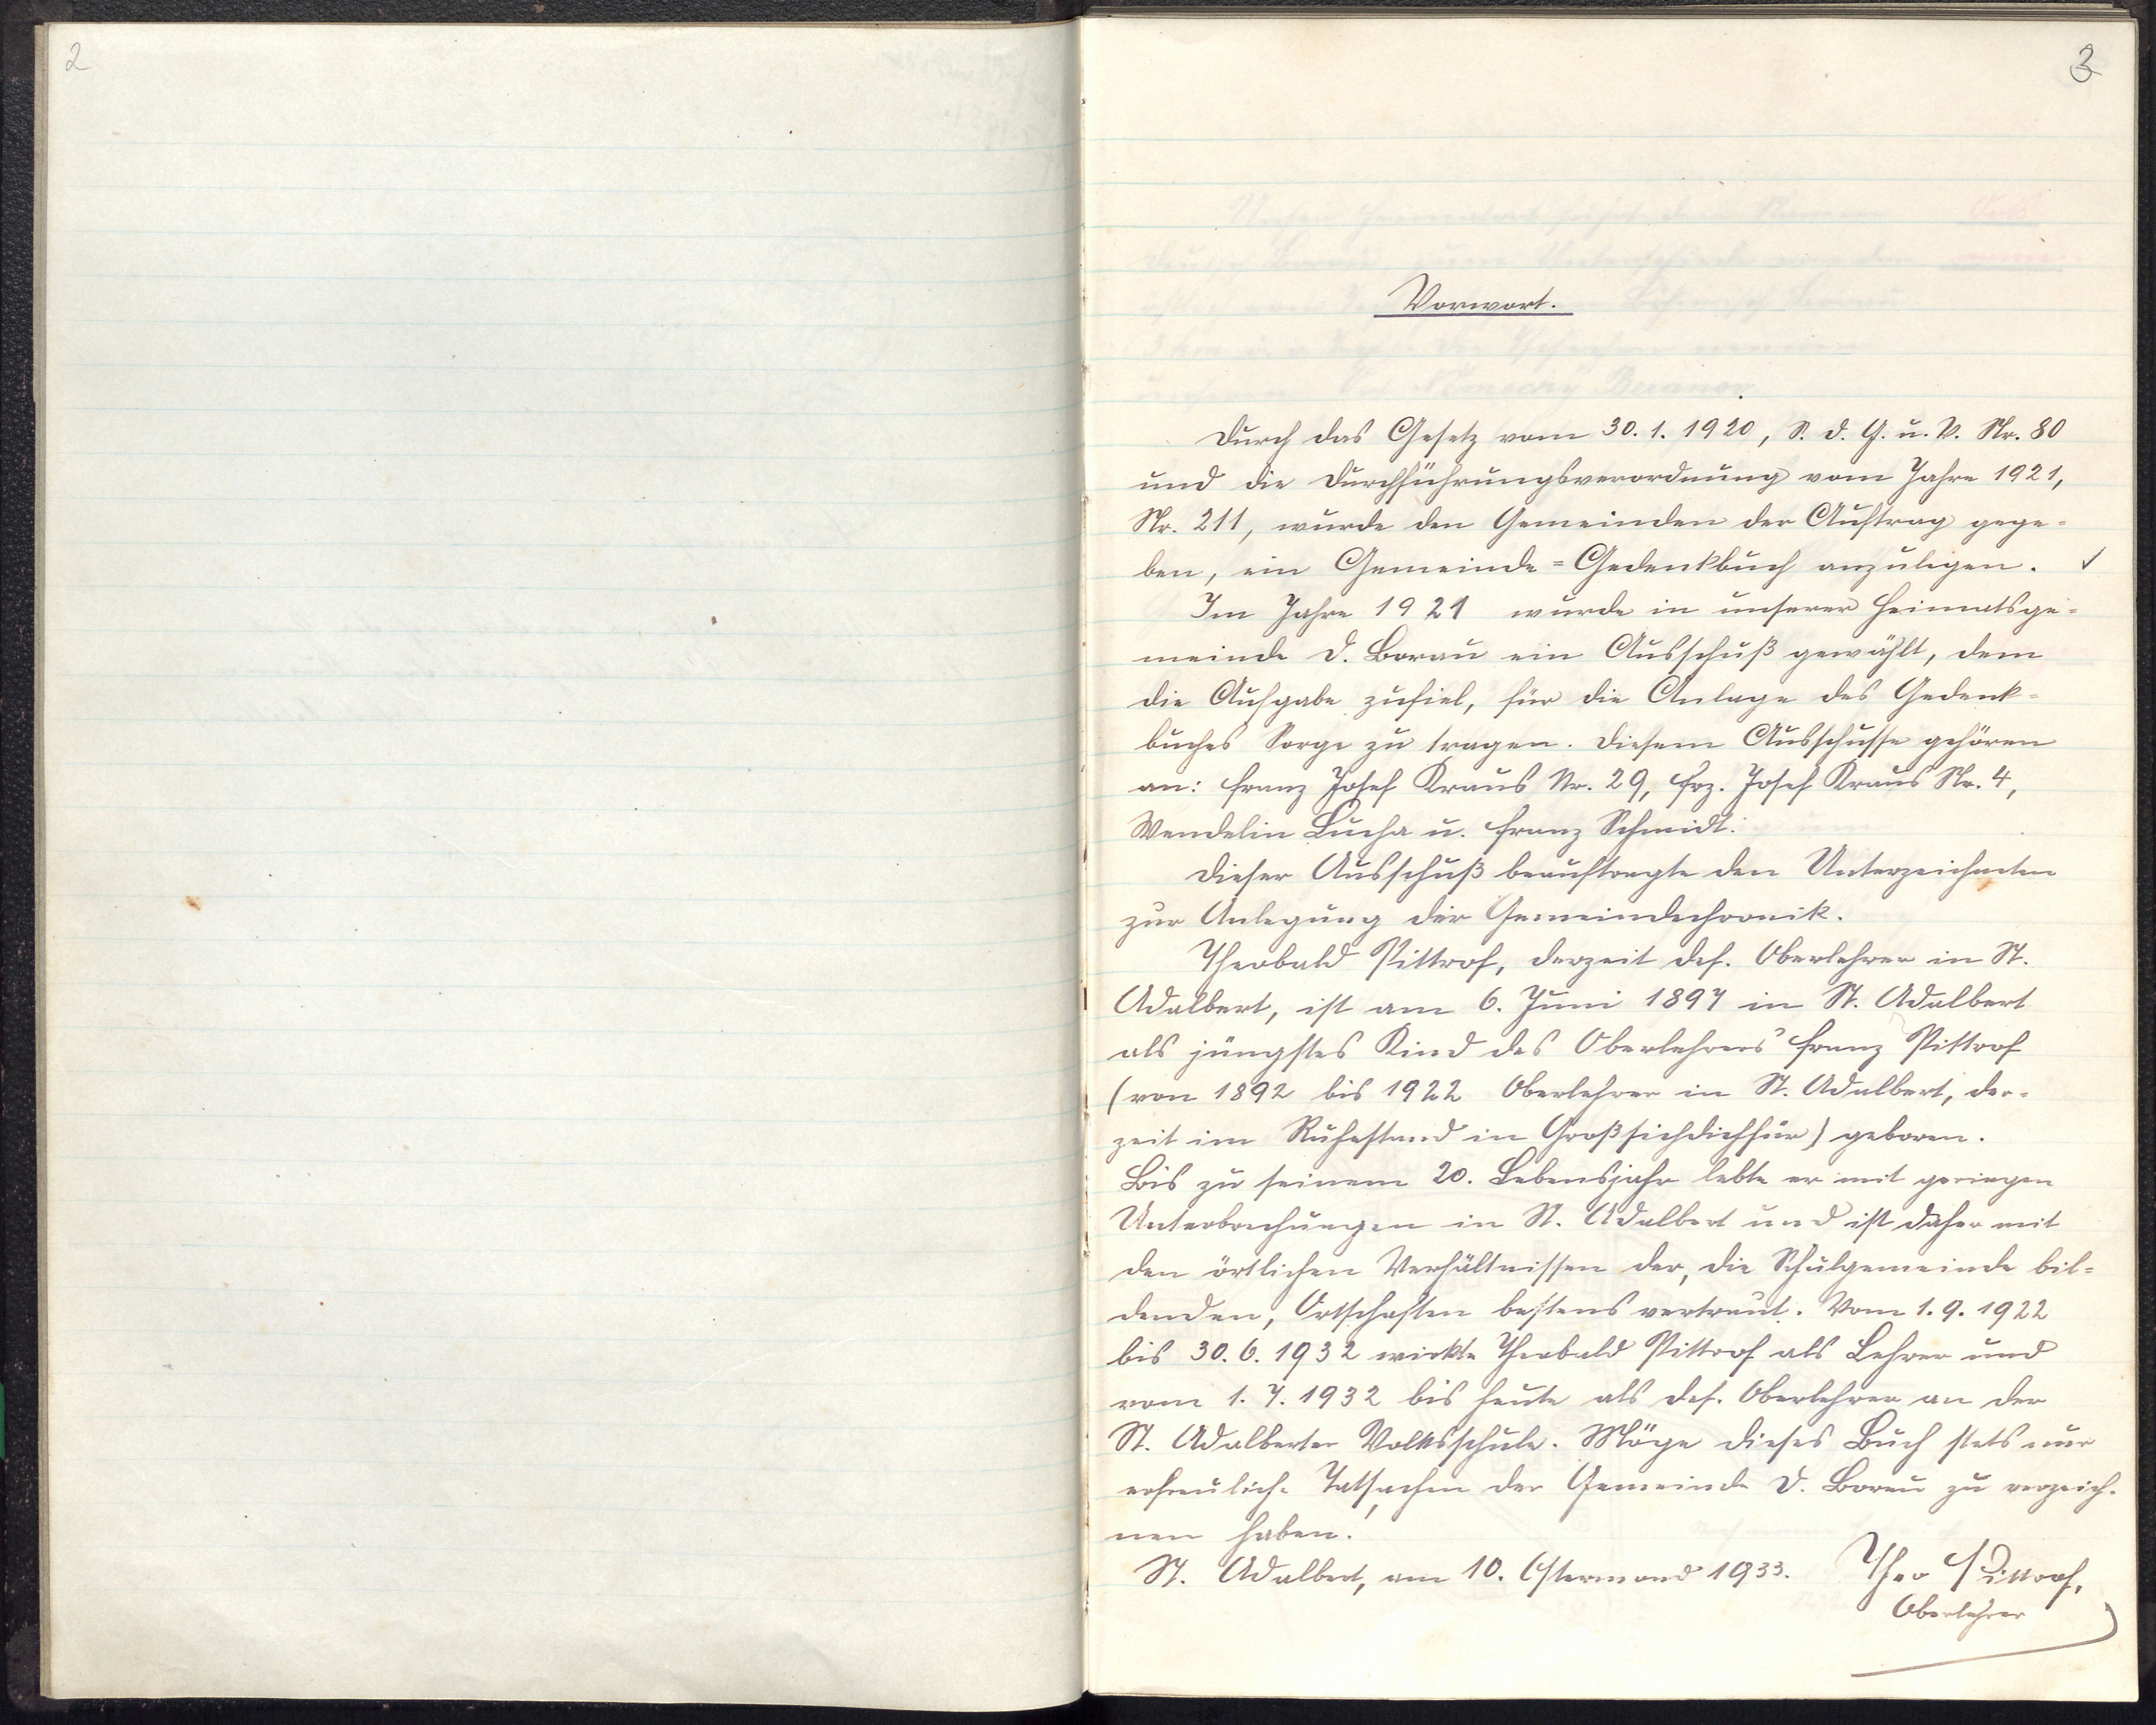 2
3
Vorwort.
Durch das Gesetz vom 30. 1. 1920, S. d. G. u. V. Nr. 80
und die Durchführungsverordnung vom Jahre 1921,
Nr. 211, wurde den Gemeinden der Auftrag gege=
ben, ein Gemeinde=Gedenkbuch anzulegen.
Im Jahre 1921 wurde in unserer Heimatsge=
meinde D. Borau ein Ausschuß gewählt, dem
die Aufgabe zufiel, für die Anlage des Gedenk=
buches Sorge zu tragen. Diesem Ausschusse gehören
an: Franz Josef Kraus Nr. 29, Frz. Josef Kraus Nr. 4,
Wendelin Lucha u. Franz Schmidt.
Dieser Ausschuß beauftragte den Unterzeichneten
zur Anlegung der Gemeindechronik.
Theobald Pittrof, derzeit def. Oberlehrer in St.
Adalbert, ist am 6. Juni 1897 in St. Adalbert
als jüngstes Kind des Oberlehrers Franz Pittrof
(von 1892 bis 1922 Oberlehrer in St. Adalbert, der=
zeit im Ruhestand in Großsichdichfür) geboren.
Bis zu seinem 20. Lebensjahr lebte er mit geringen
Unterbrechungen in St. Adalbert und ist daher mit
den örtlichen Verhältnissen der, die Schulgemeinde bil=
denden, Ortschaften bestens vertraut. Vom 1. 9. 1922
bis 30. 6. 1932 wirkte Theobald Pittrof als Lehrer und
vom 1. 7. 1932 bis heute als def. Oberlehrer an der
St. Adalberter Volksschule. Möge dieses Buch stets nur
erfreuliche Tatsachen der Gemeinde D. Borau zu verzeich=
nen haben!
St. Adalbert, am 10. Ostermond 1933. Theo Pittrof,
Oberlehrer